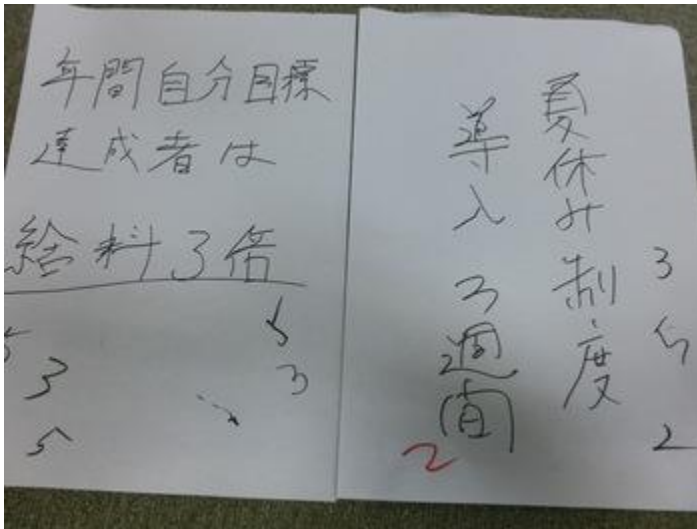 年間自分目標
達成者は
給料3倍
5
3
5
5
3
夏休み制度
導入 3週間
3
5
2
2